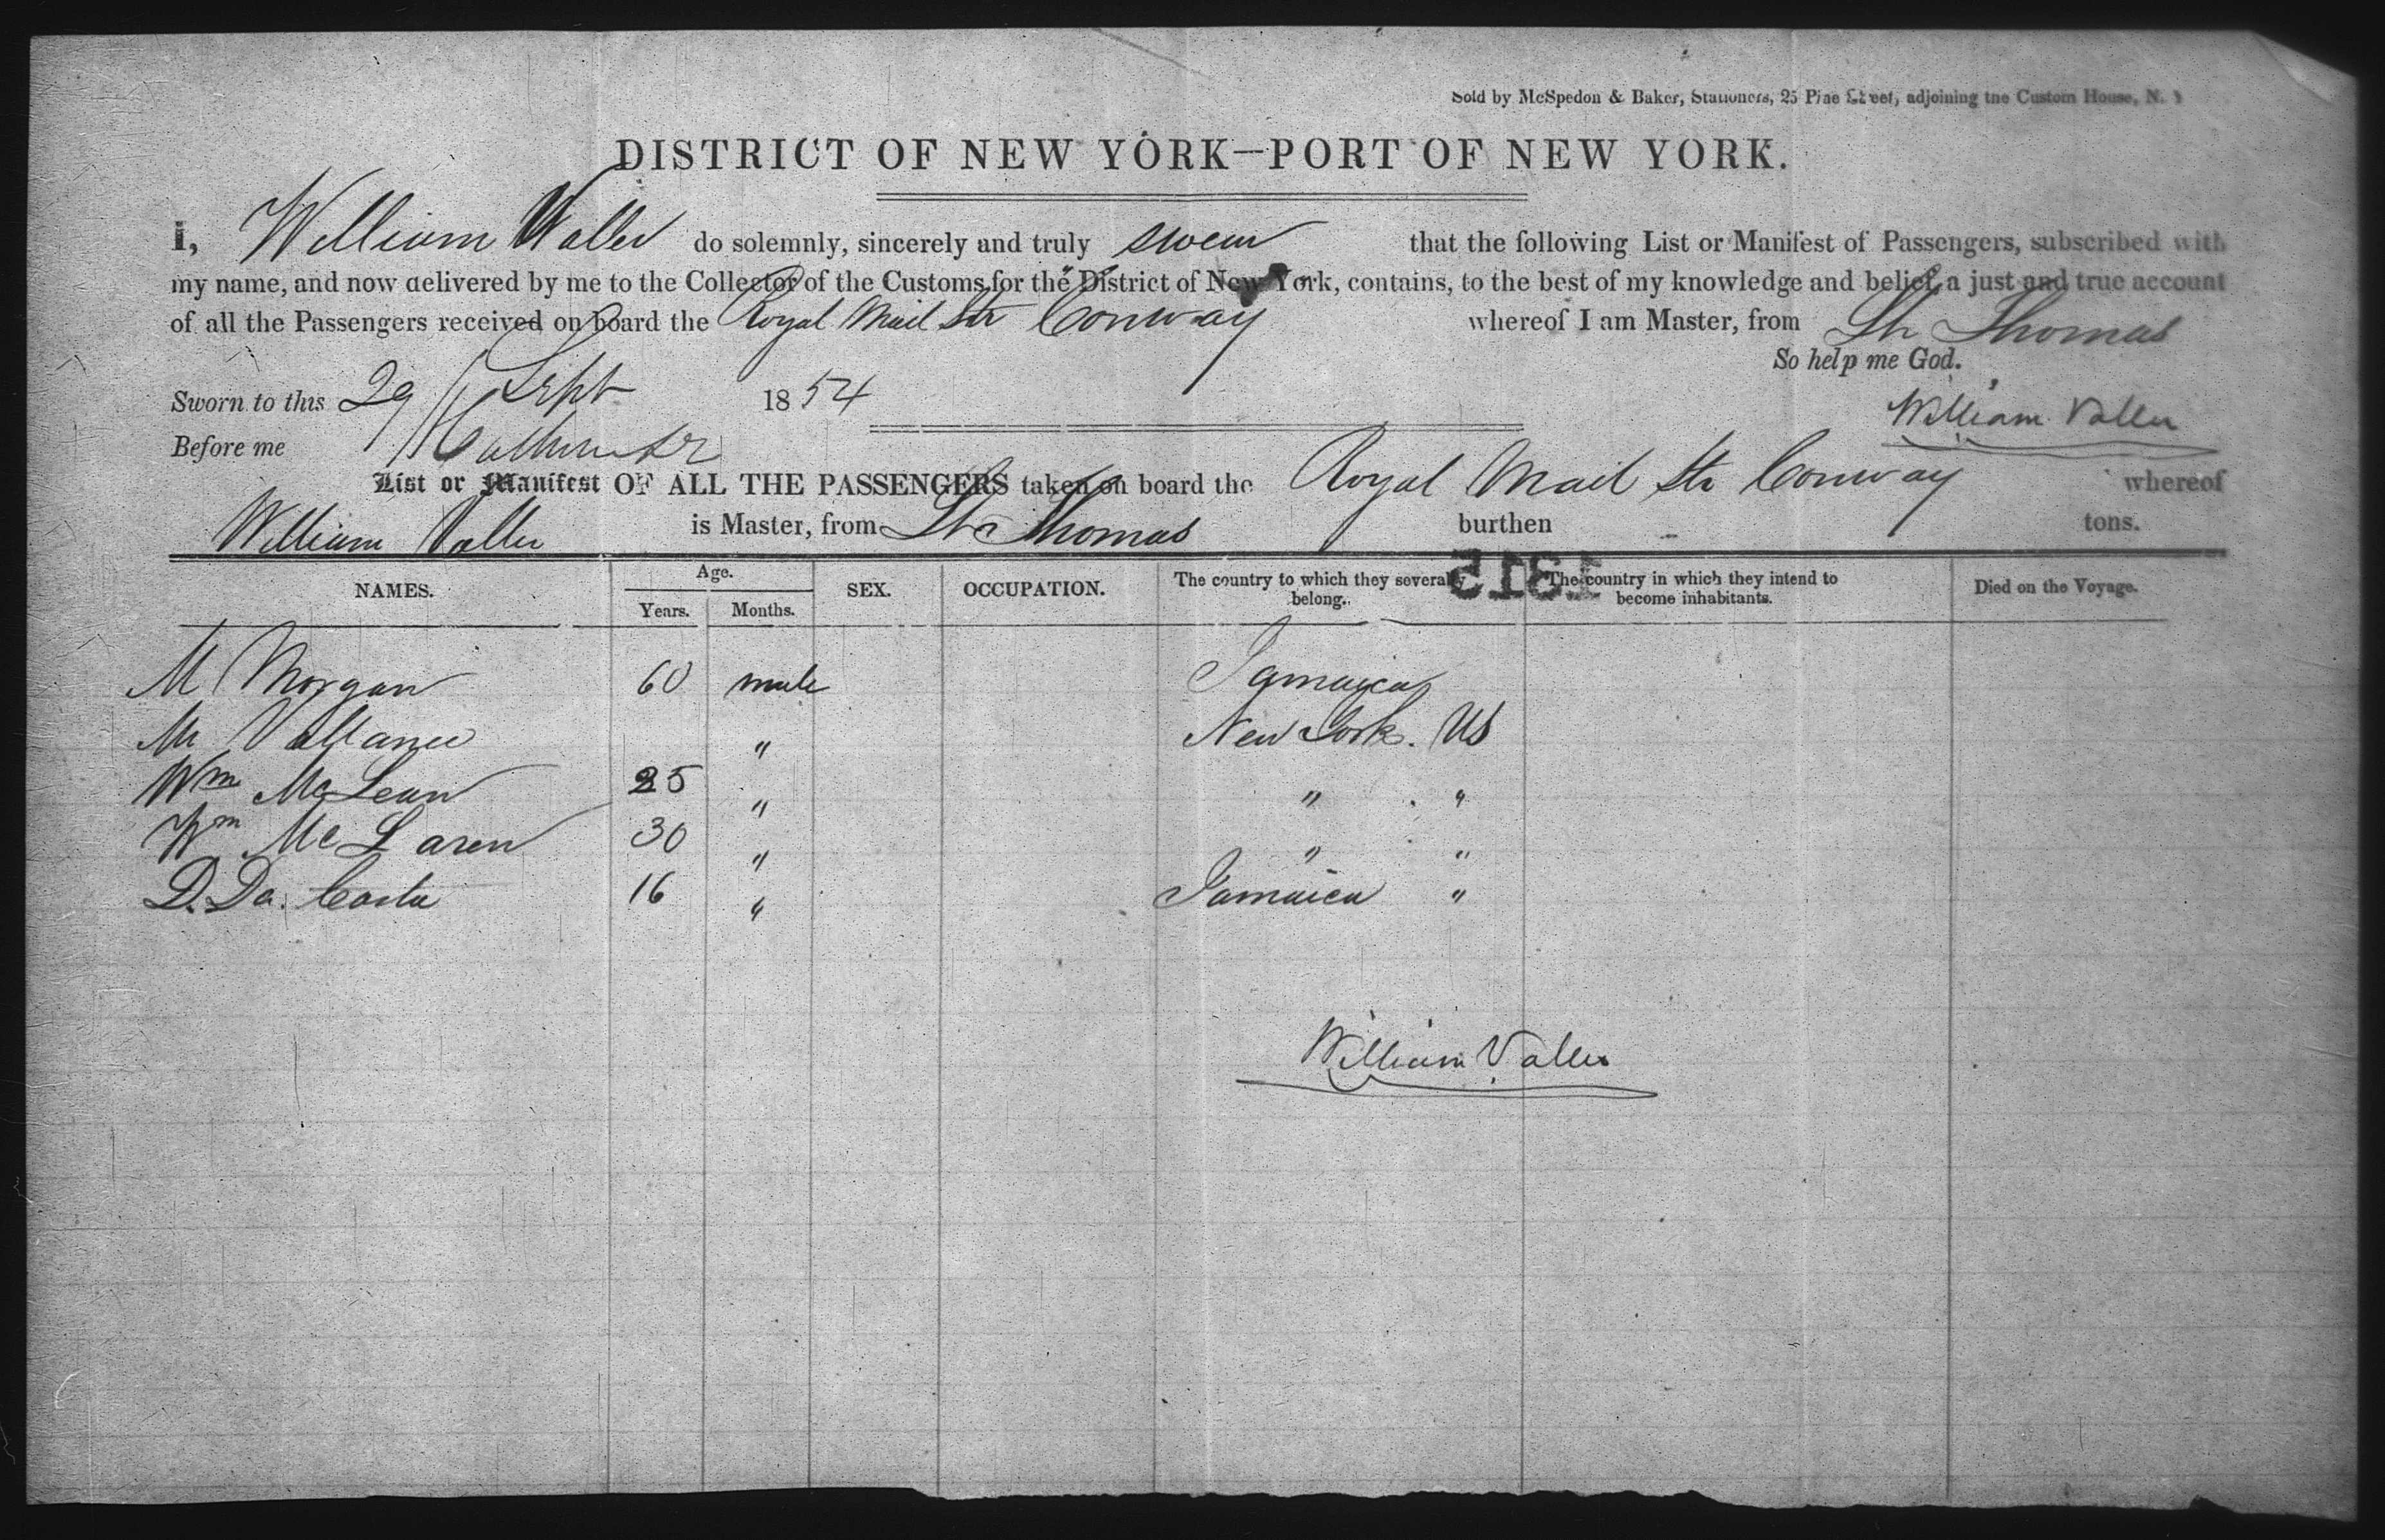 Sold by McSpedon & Baker, Stationers, 25 Pine Street, adjoining the Custom House, N. Y
DISTRICT OF NEW YORK—PORT OF NEW YORK.
I, William Valler do solemnly, sincerely and truly swear that the following List or Manifest of Passengers, subscribed with
my name, and now delivered by me to the Collector of the Customs for the District of New York, contains, to the best of my knowledge and belief, a just and true account
of all the Passengers received on board the Royal Mail Str Conway whereof I am Master, from St Thomas
So help me God.
Sworn to this 29 Sept 1854
William Valler
Before me
List or Manifest OF ALL THE PASSENGERS taken on board the Royal Mail Str Conway whereof
William Valler is Master, from St Thomas burthen tons.
1315
NAMES. Age. Years. Months. SEX. OCCUPATION. The country to which they severally belong. The country in which they intend to become inhabitants. Died on the Voyage.
M Morgan 60 male Jamaica
Mr Vallance " New York. US
Wm McLean 25 " " "
Wm McLaren 30 " " "
D. Da. Costa 16 " Jamaica "
William Valler